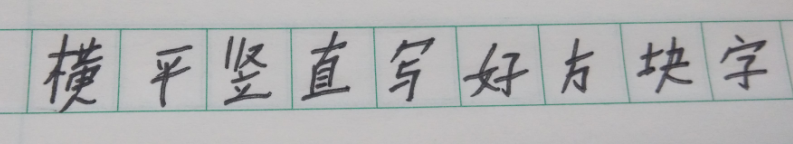 横平竖直写好方块字